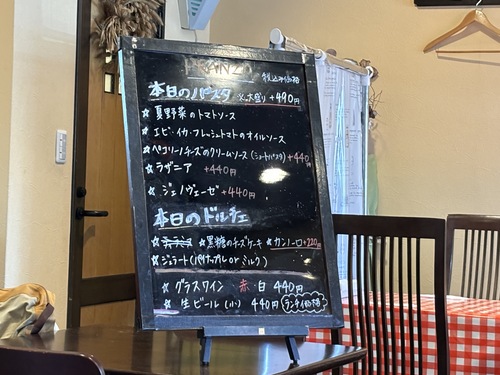 PRANZO
税込み価格
本日のパスタ ※大盛り +490円
☆ 夏野菜のトマトソース
☆ エビ・イカ・フレッシュトマトのオイルソース
☆ ペコリーノチーズのクリームソース (ショートパスタ) +440円
☆ ラザニア +440円
☆ ジェノヴェーゼ +440円
本日のドルチェ
☆ ☆ 黒糖のチーズケーキ ☆ カンノーロ +220円
☆ ジェラート (パイナップル or ミルク)
☆ グラスワイン 赤・白 440円
☆ 生ビール (小) 440円 ランチ価格